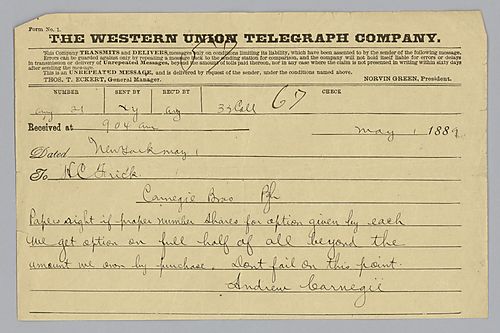 Form No. 1.
THE WESTERN UNION TELEGRAPH COMPANY.
This Company TRANSMITS and DELIVERS messages only on conditions limiting its liability, which have been assented to by the sender of the following message.
Errors can be guarded against only by repeating a message back to the sending station for comparison, and the company will not hold itself liable for errors or delays
in transmission or delivery of Unrepeated Messages, beyond the amount of tolls paid thereon, nor in any case where the claim is not presented in writing within sixty days
after sending the message.
This is an UNREPEATED MESSAGE, and is delivered by request of the sender, under the conditions named above.
THOS. T. ECKERT, General Manager. NORVIN GREEN, President.
NUMBER SENT BY REC'D BY CHECK
21 33 Coll 67
Received at 904 am May 1 1889
Dated New York May 1
To H C Frick
Carnegie Bros Pgh
Papers right if proper number shares for option given by each
we get option on full half of all beyond the
amount we own by purchase. Dont fail on this point.
Andrew Carnegie